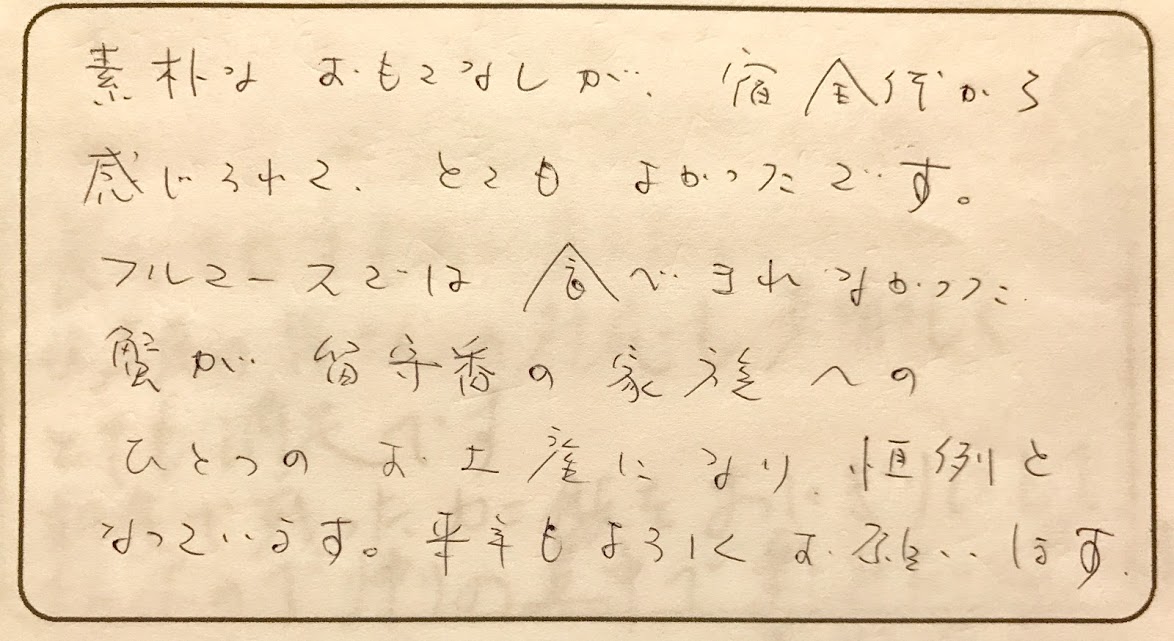 素朴な おもてなしが、宿全体から
感じられて、とても よかったです。
フルコースでは 食べきれなかった
蟹が 留守番の 家族への
ひとつの お土産になり、恒例と
なっています。来年もよろしくお願いします.